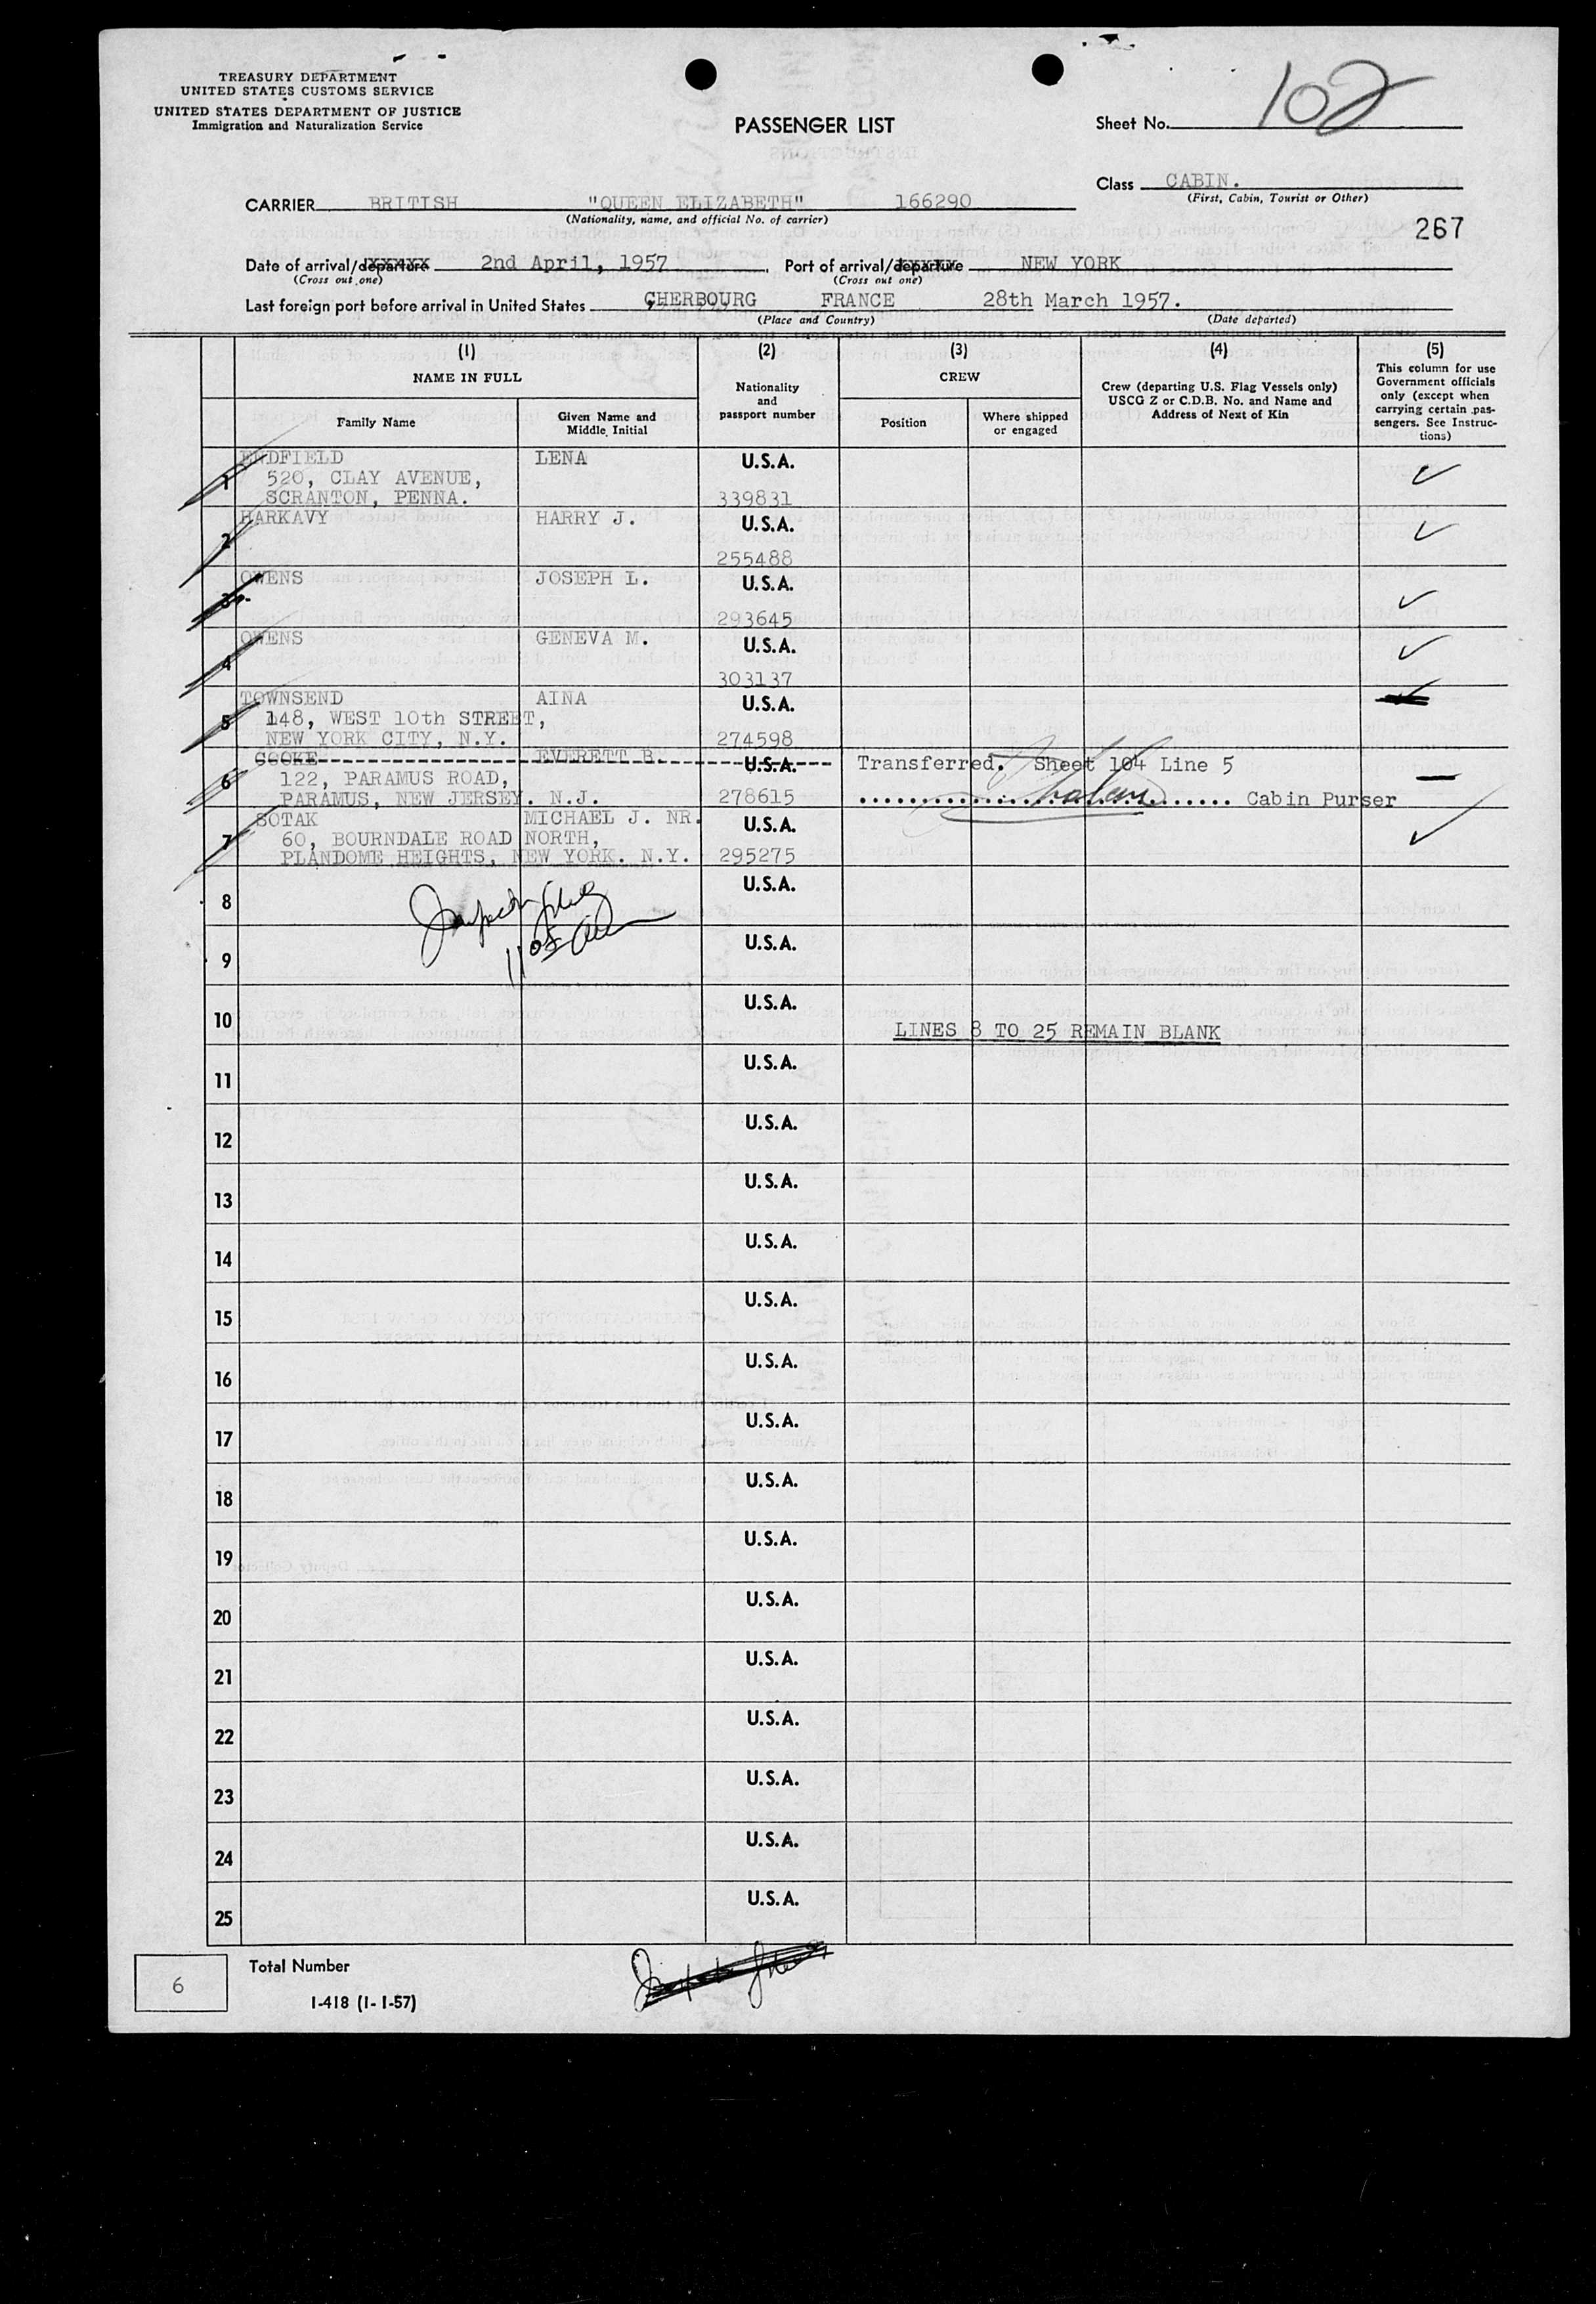 TREASURY DEPARTMENT
UNITED STATES CUSTOMS SERVICE
UNITED STATES DEPARTMENT OF JUSTICE
Immigration and Naturalization Service
PASSENGER LIST
Sheet No. 102
Class CABIN.
(First, Cabin, Tourist or Other)
CARRIER BRITISH "QUEEN ELIZABETH" 166290
(Nationality, name, and official No. of carrier)
267
Date of arrival/departure 2nd April, 1957. Port of arrival/departure NEW YORK
(Cross out one) (Cross out one)
Last foreign port before arrival in United States CHERBOURG FRANCE 28th March 1957.
(Place and Country) (Date departed)
(1) (2) (3) (4) (5)
NAME IN FULL
Family Name
Given Name and
Middle Initial
Nationality
and
passport number
CREW
Position
Where shipped
or engaged
Crew (departing U.S. Flag Vessels only)
USCG Z or C.D.B. No. and Name and
Address of Next of Kin
This column for use
Government officials
only (except when
carrying certain pas-
sengers. See Instruc-
tions)
1 ENDFIELD LENA U.S.A.
520, CLAY AVENUE,
SCRANTON, PENNA. 339831
2 HARKAVY HARRY J. U.S.A.
255488
3 OWENS JOSEPH L. U.S.A.
293645
4 OWENS GENEVA M. U.S.A.
303137
5 TOWNSEND AINA U.S.A.
148, WEST 10th STREET,
NEW YORK CITY, N.Y. 274598
6 COOKE EVERETT B. U.S.A. Transferred. Sheet 104 Line 5
122, PARAMUS ROAD,
PARAMUS, NEW JERSEY. N.J. 278615 Cabin Purser
7 SOTAK MICHAEL J. NR. U.S.A.
60, BOURNDALE ROAD NORTH,
PLANDOME HEIGHTS, NEW YORK. N.Y. 295275
8 U.S.A.
9 U.S.A.
10 U.S.A.
LINES 8 TO 25 REMAIN BLANK
11 U.S.A.
12 U.S.A.
13 U.S.A.
14 U.S.A.
15 U.S.A.
16 U.S.A.
17 U.S.A.
18 U.S.A.
19 U.S.A.
20 U.S.A.
21 U.S.A.
22 U.S.A.
23 U.S.A.
24 U.S.A.
25 U.S.A.
6 Total Number
I-418 (1-1-57)